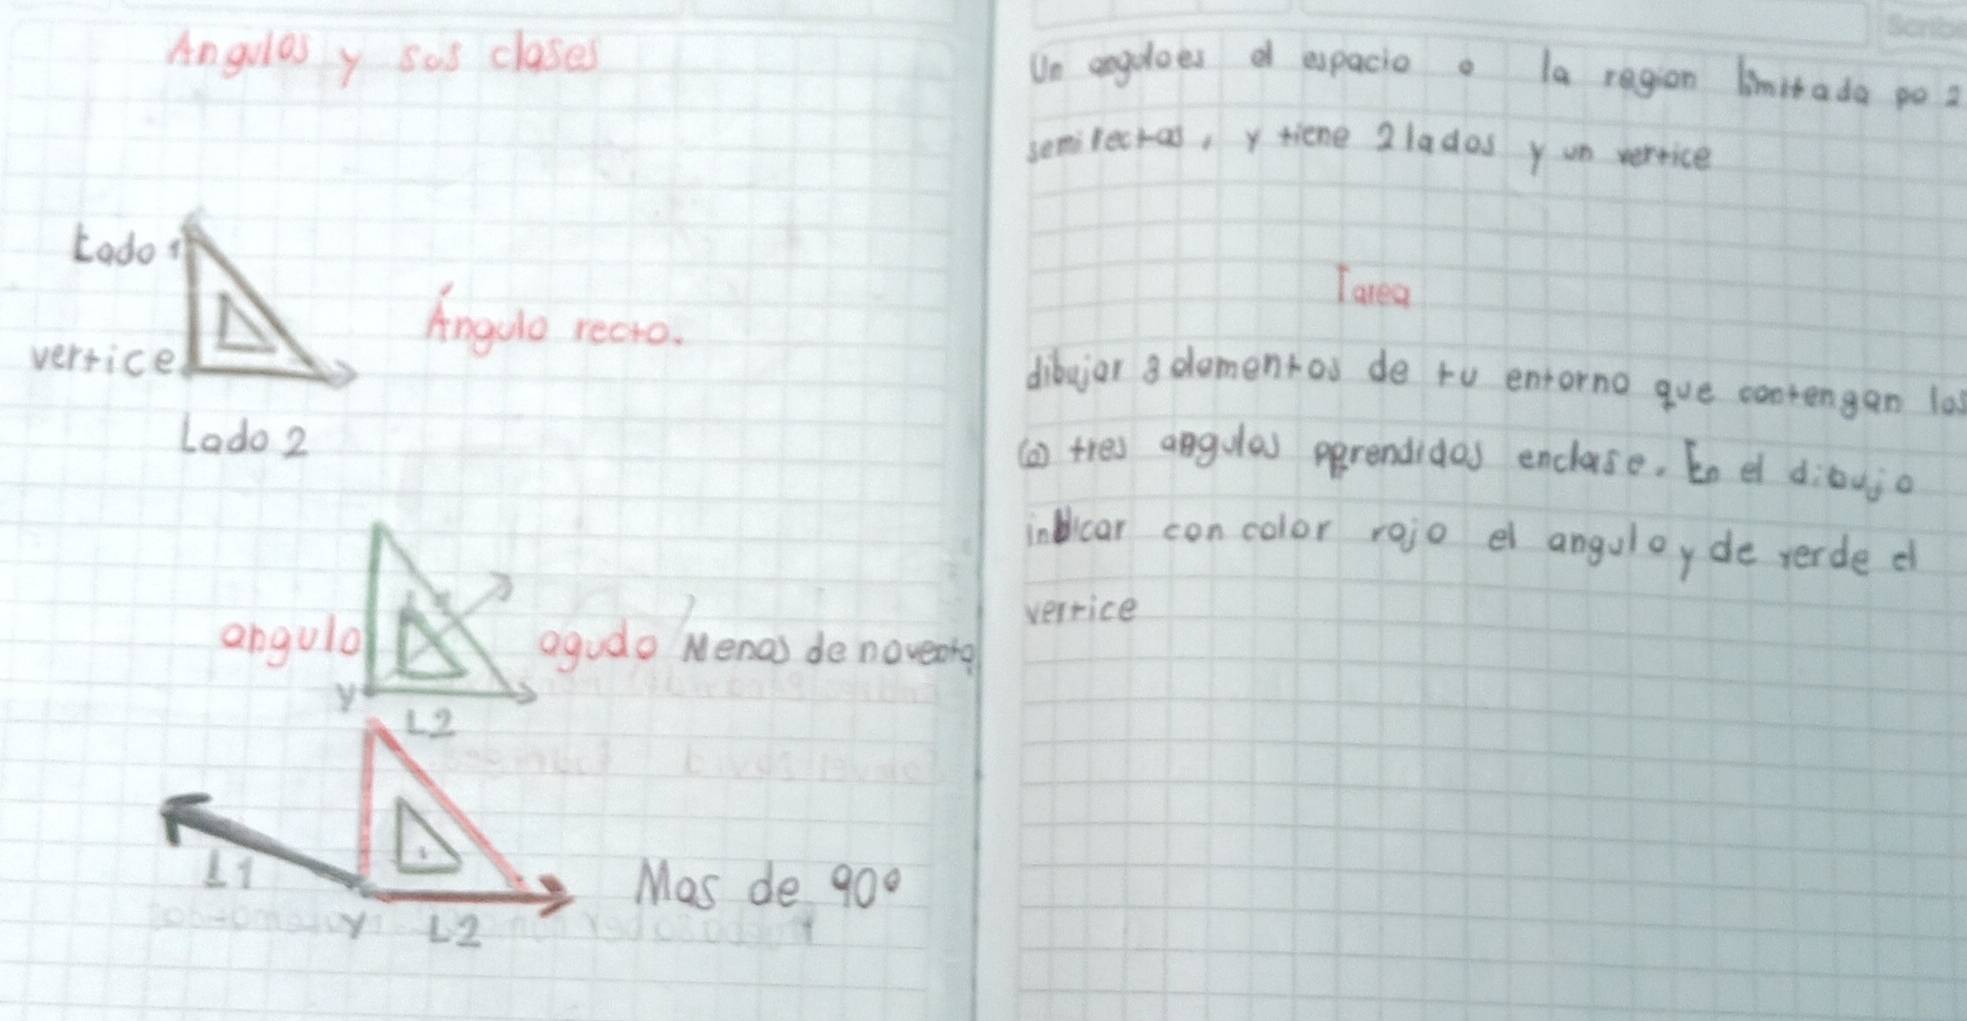 Angulos y sus clases
Lado 1
Ángulo recto.
vertice
Lado 2
angulo agudo Menos de noventa
V
L2
L1
Mas de 90°
V L2
Un anguloes el espacio o la region limitada po 2
semirectas, y tiene 2 lados y un vertice
Tarea
dibujar 3 elementos de tu entorno que contengan los
tres angulos aprendidos enclase. En el dibujo
indicar con color rojo el angulo y de verde el
vertice